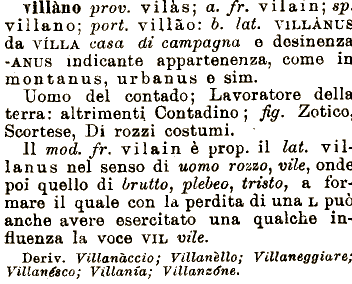 villàno prov. vilàs; a. fr. vilain; sp.
villano; port. villão: b. lat. VILLÀNUS
da VÍLLA casa di campagna e desinenza
-ANUS indicante appartenenza, come in
montanus, urbanus e sim.
Uomo del contado; Lavoratore della
terra: altrimenti Contadino; fig. Zotico,
Scortese, Di rozzi costumi.
Il mod. fr. vilain è prop. il lat. vil-
lanus nel senso di uomo rozzo, vile, onde
poi quello di brutto, plebeo, tristo, a for-
mare il quale con la perdita di una L può
anche avere esercitato una qualche in-
fluenza la voce VIL vile.
Deriv. Villanàccio; Villanèllo; Villaneggiare;
Villanésco; Villanía; Villanzóne.